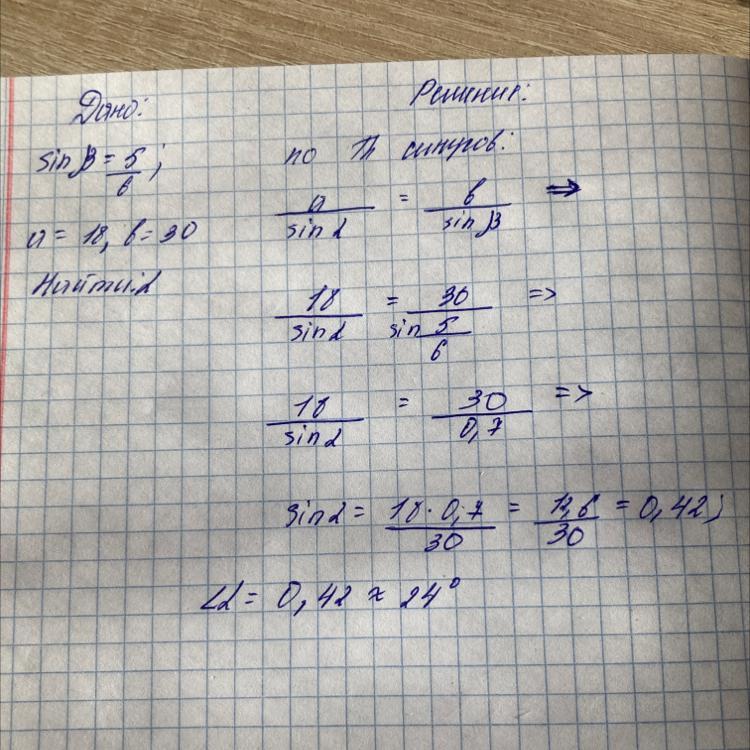 Дано:
sin β = 5/6;
a = 18, b = 30
Найти: α
Решение:
по Th синусов:
a/sin α = b/sin β ⇒
18/sin α = 30/sin 5/6 =>
18/sin α = 30/0,7 =>
sin α = 18 · 0,7/30 = 12,6/30 = 0,42;
∠α = 0,42 ≈ 24°